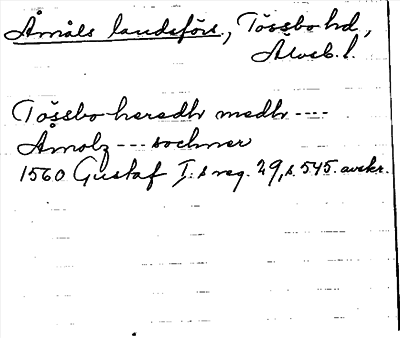 Åmåls landsförs., Tössbo hd,
Älvsb. l.
Tössbo heredh medh ----
Åmolz --- sochner
1560 Gustaf I:s reg. 29, s. 545. avskr.